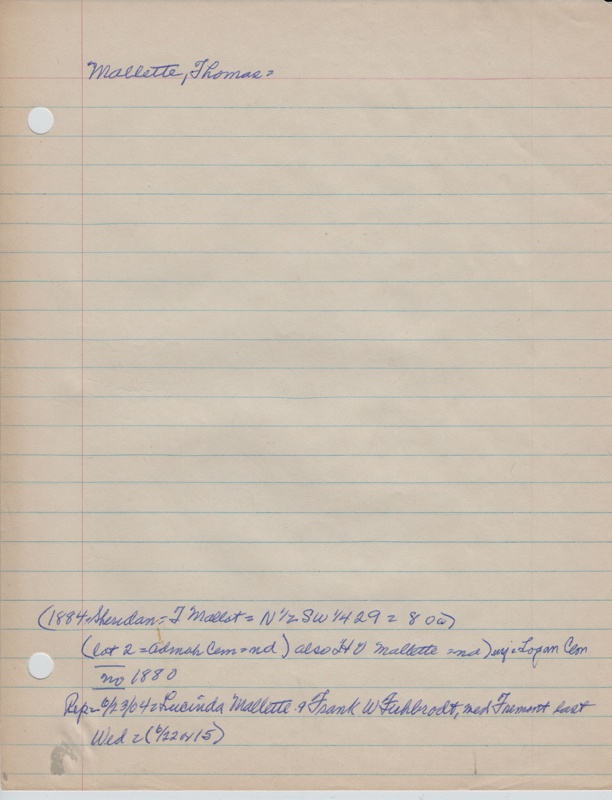 Mallette, Thomas =
(1884 = Sheridan = T Mallet = N 1/2 SW 1/4 29 = 80a)
(lot 2 = Admah Cem = nd) also H V Mallette = nd) = Logan Cem
no 1880
Rep = 6/23/04 = Lucinda Mallette & Frank W Fuhbrodt, med Fremont last
Wed = (6/22 or 15)